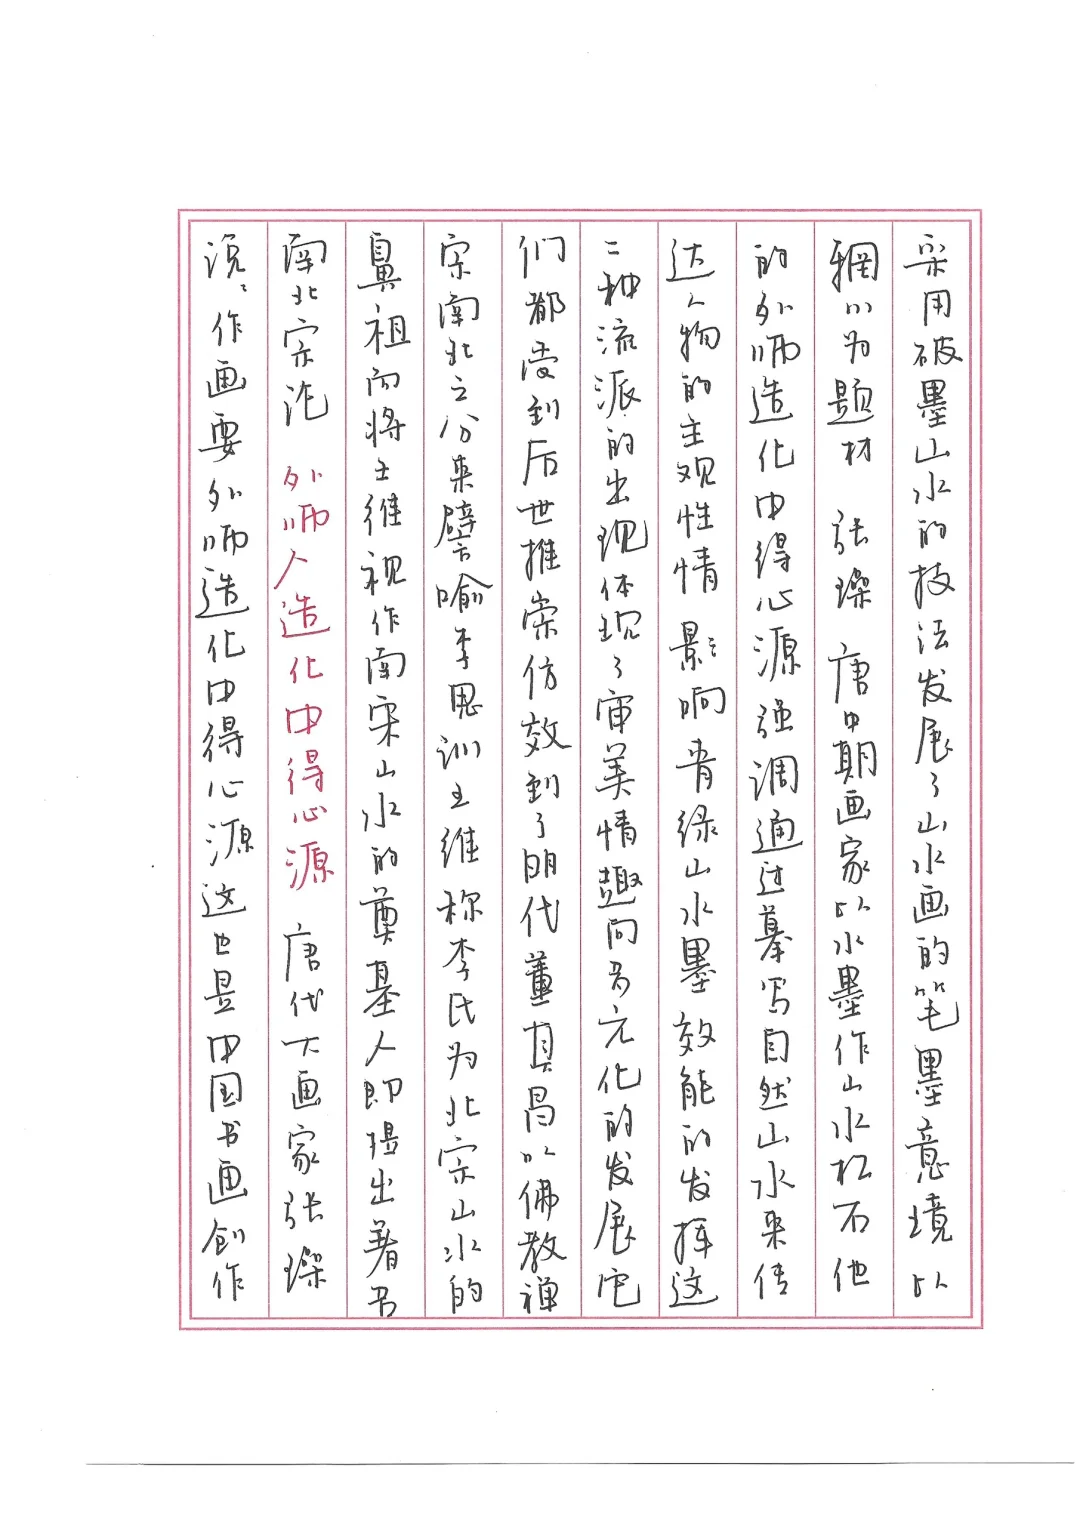 采用破墨山水的技法发展了山水画的笔墨意境以
辋川为题材 张璪 唐中期画家以水墨作山水松石他
的外师造化中得心源强调通过摹写自然山水来传
达人物的主观性情 影响 青绿山水墨效能的发挥这
二种流派的出现体现了审美情趣向多元化的发展它
们都受到后世推崇仿效到了明代董其昌以佛教禅
宗南北之分来譬喻李思训王维称李氏为北宗山水的
鼻祖而将王维视作南宋山水的奠基人即提出著名
南北宗论 外师人造化中得心源 唐代大画家张璪
说：作画要外师造化中得心源这也是中国书画创作